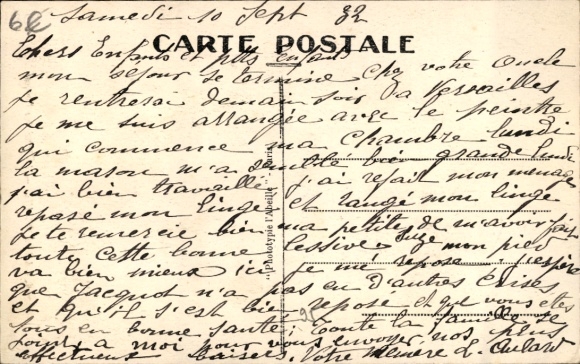 6€
Samedi 10 Sept 32
CARTE POSTALE
Chers Enfants et ptts enfants
mon séjour se termine chez votre oncle
je rentrerai demain soir a Versailles
je me suis arrangée avec le peintre
qui commence ma chambre lundi
la maison m'a semblé bien grande lundi
j'ai bien travaillé j'ai refait mon ménage
repasé mon linge et rangé mon linge
je te remercie bien ma petite de m'avoir fait
toute cette bonne lessive Suze mon pied
va bien mieux ici je me repose j'espère
que Jacquot n'a pas eu d'autres crises
et qu'il s'est bien reposé et que vous etes
tous en bonne santé toute la famille se
joint a moi pour vous envoyer nos plus
affectueux baisers. Votre Mémère L.
"Phototypie l'Abeille" Paris